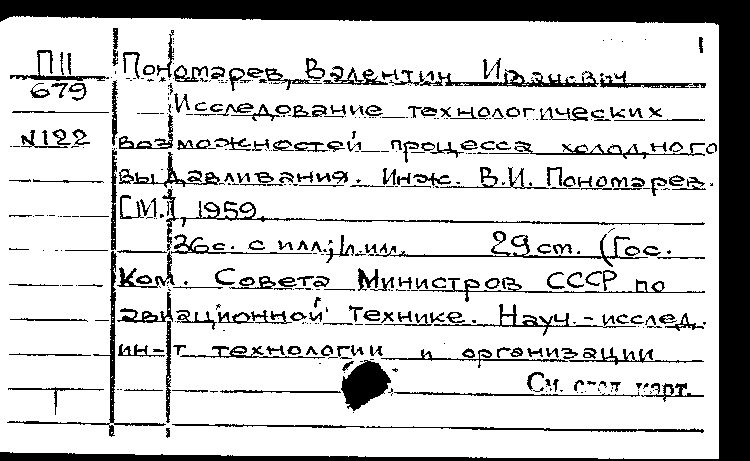 1
П11
679
N122
Пономарев, Валентин Иванович
Исследование технологических
возможностей процесса холодного
выдавливания. Инж. В.И. Пономарев.
[М.], 1959.
36с. с илл.; 29см. (Гос.
Ком. Совета Министров СССР по
авиационной технике. Науч.-исслед.
ин-т технологии и организации
См. след карт.